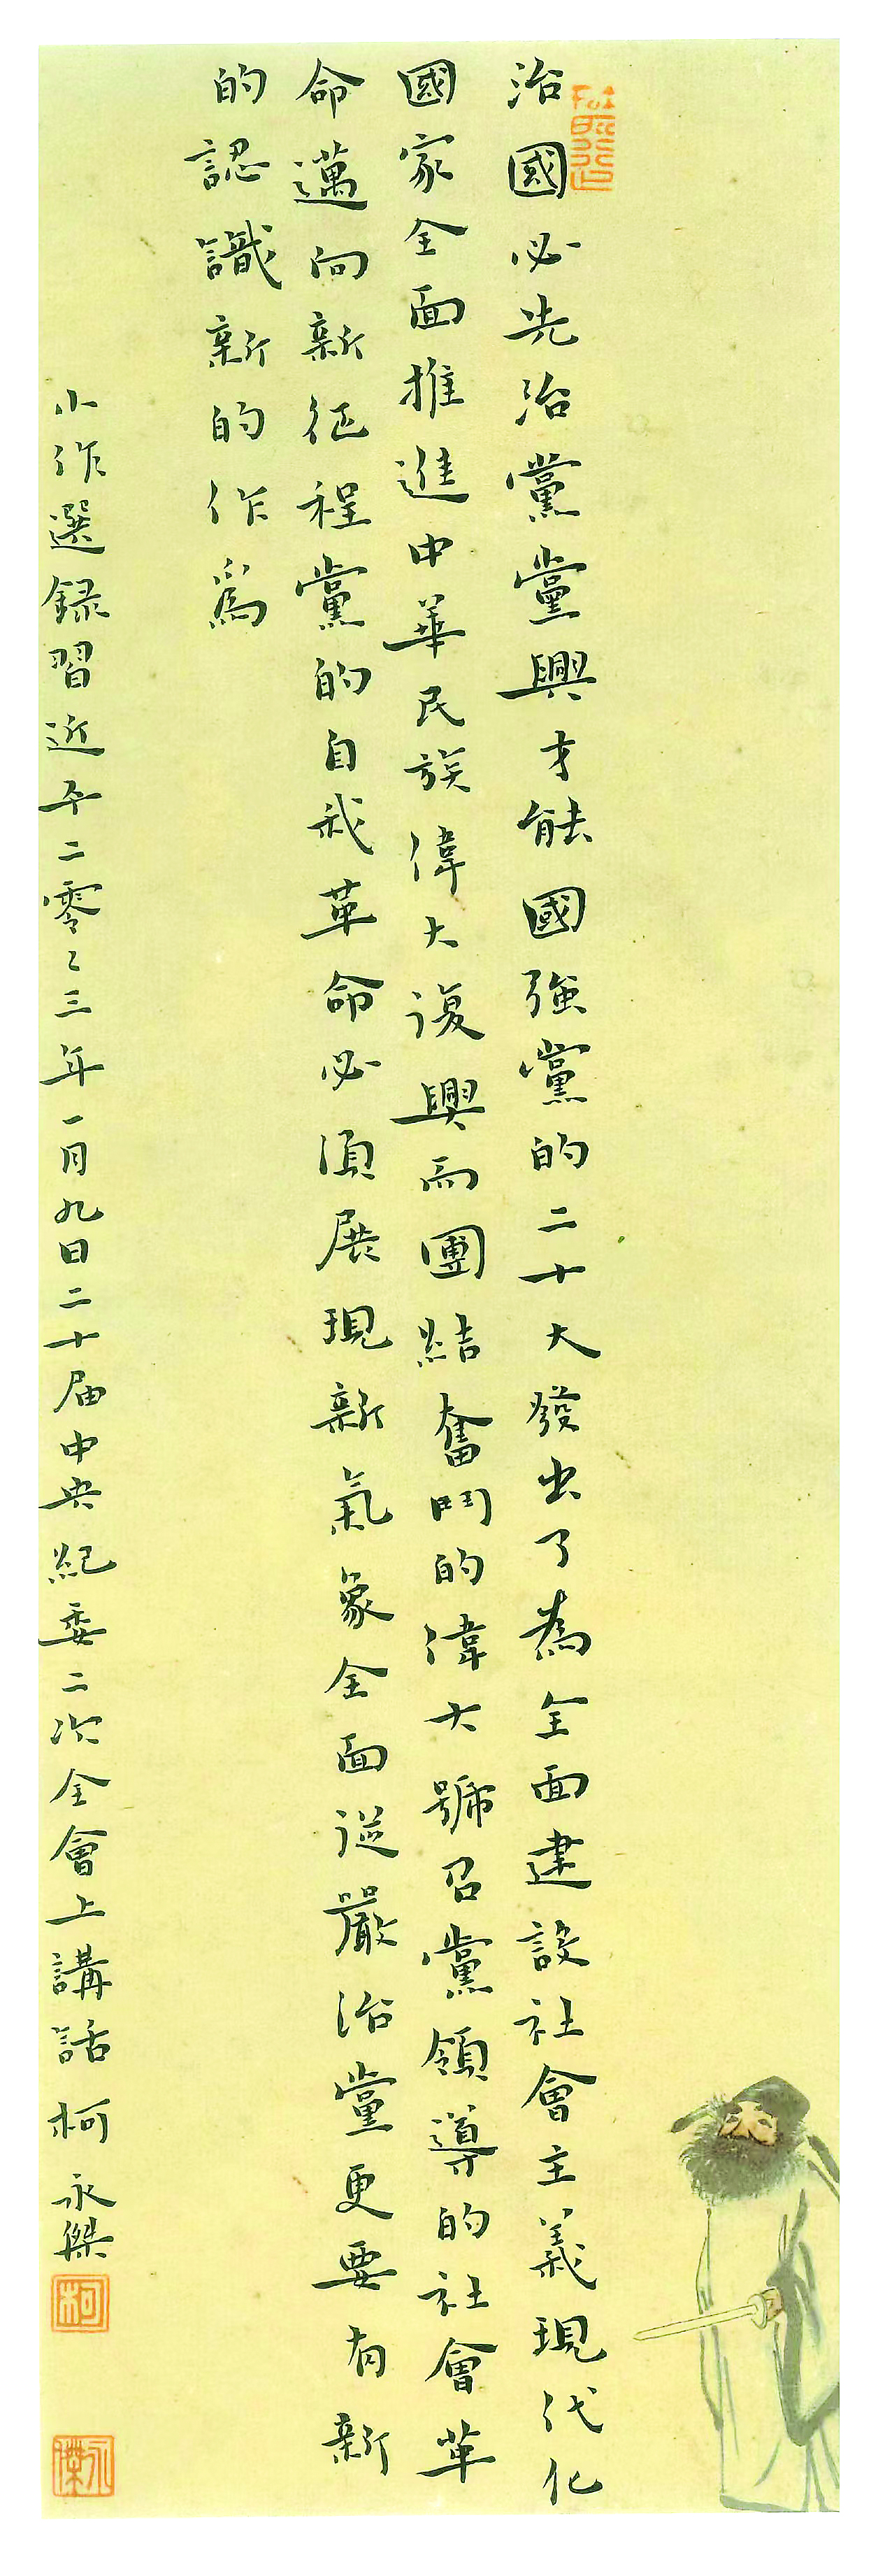 治國必先治黨黨興才能國強黨的二十大發出了為全面建設社會主義現代化
國家全面推進中華民族偉大復興而團結奮鬥的偉大號召黨領導的社會革
命邁向新征程黨的自我革命必須展現新氣象全面從嚴治黨更要有新
的認識新的作爲
小作選録習近平二零二三年一月九日二十届中央紀委二次全會上講話柯永傑
柯
永傑